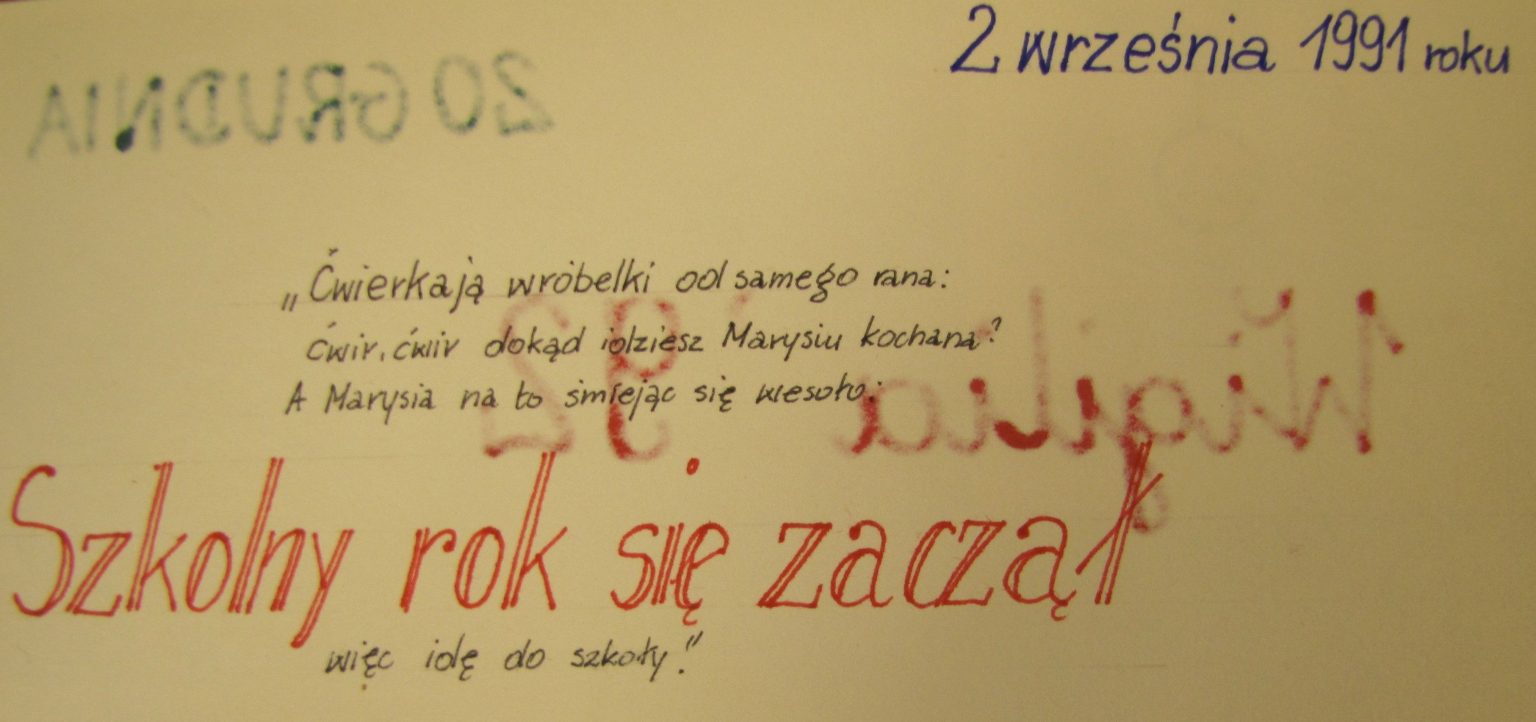 2 września 1991 roku
20 GRUDNIA
„Ćwierkają wróbelki od samego rana:
ćwir, ćwir dokąd idziesz Marysiu kochana?
A Marysia na to śmiejąc się wesoło:
Wigilia '92
Szkolny rok się zaczął
więc idę do szkoły."